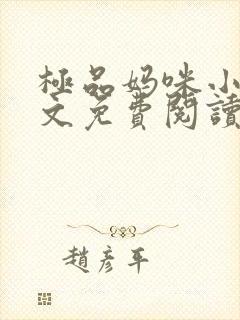 極品妈咪小
文免費閱讀
趙彥平